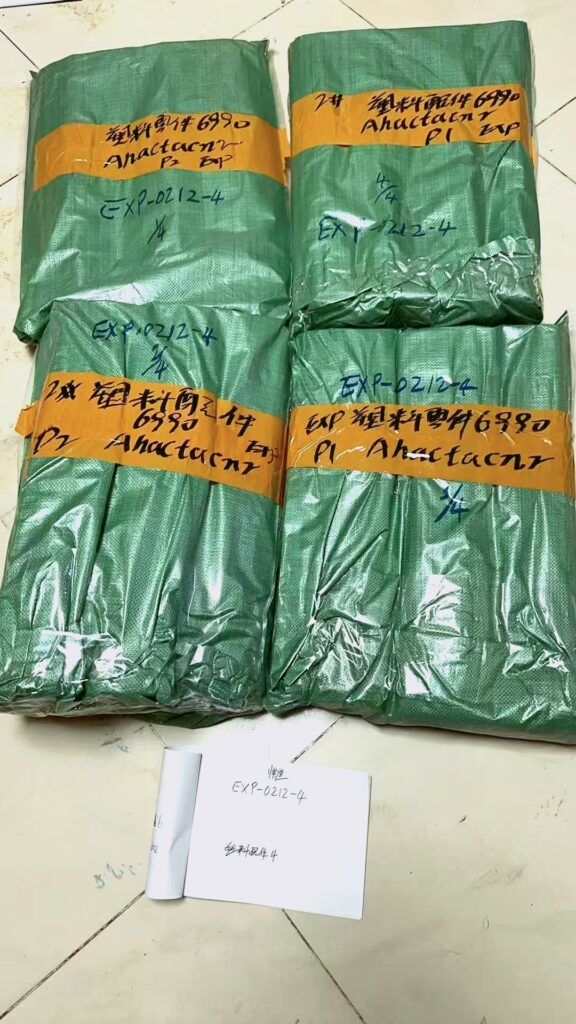 塑料配件6990
Anactacnr
P2 EXP
EXP-0212-4
1/4
2# 塑料配件6990
Anactacnr
P1 EXP
4/4
EXP-0212-4
EXP-0212-4
塑料配件
6990
P2 Anactacnr
EXP-0212-4
EXP 塑料配件6990
P1 Anactacnr
EXP-0212-4
塑料配件4